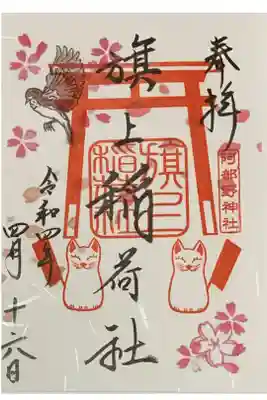 奉拝
阿部野神社
旗上稲荷社
旗上
稲荷
令和四年
四月十六日